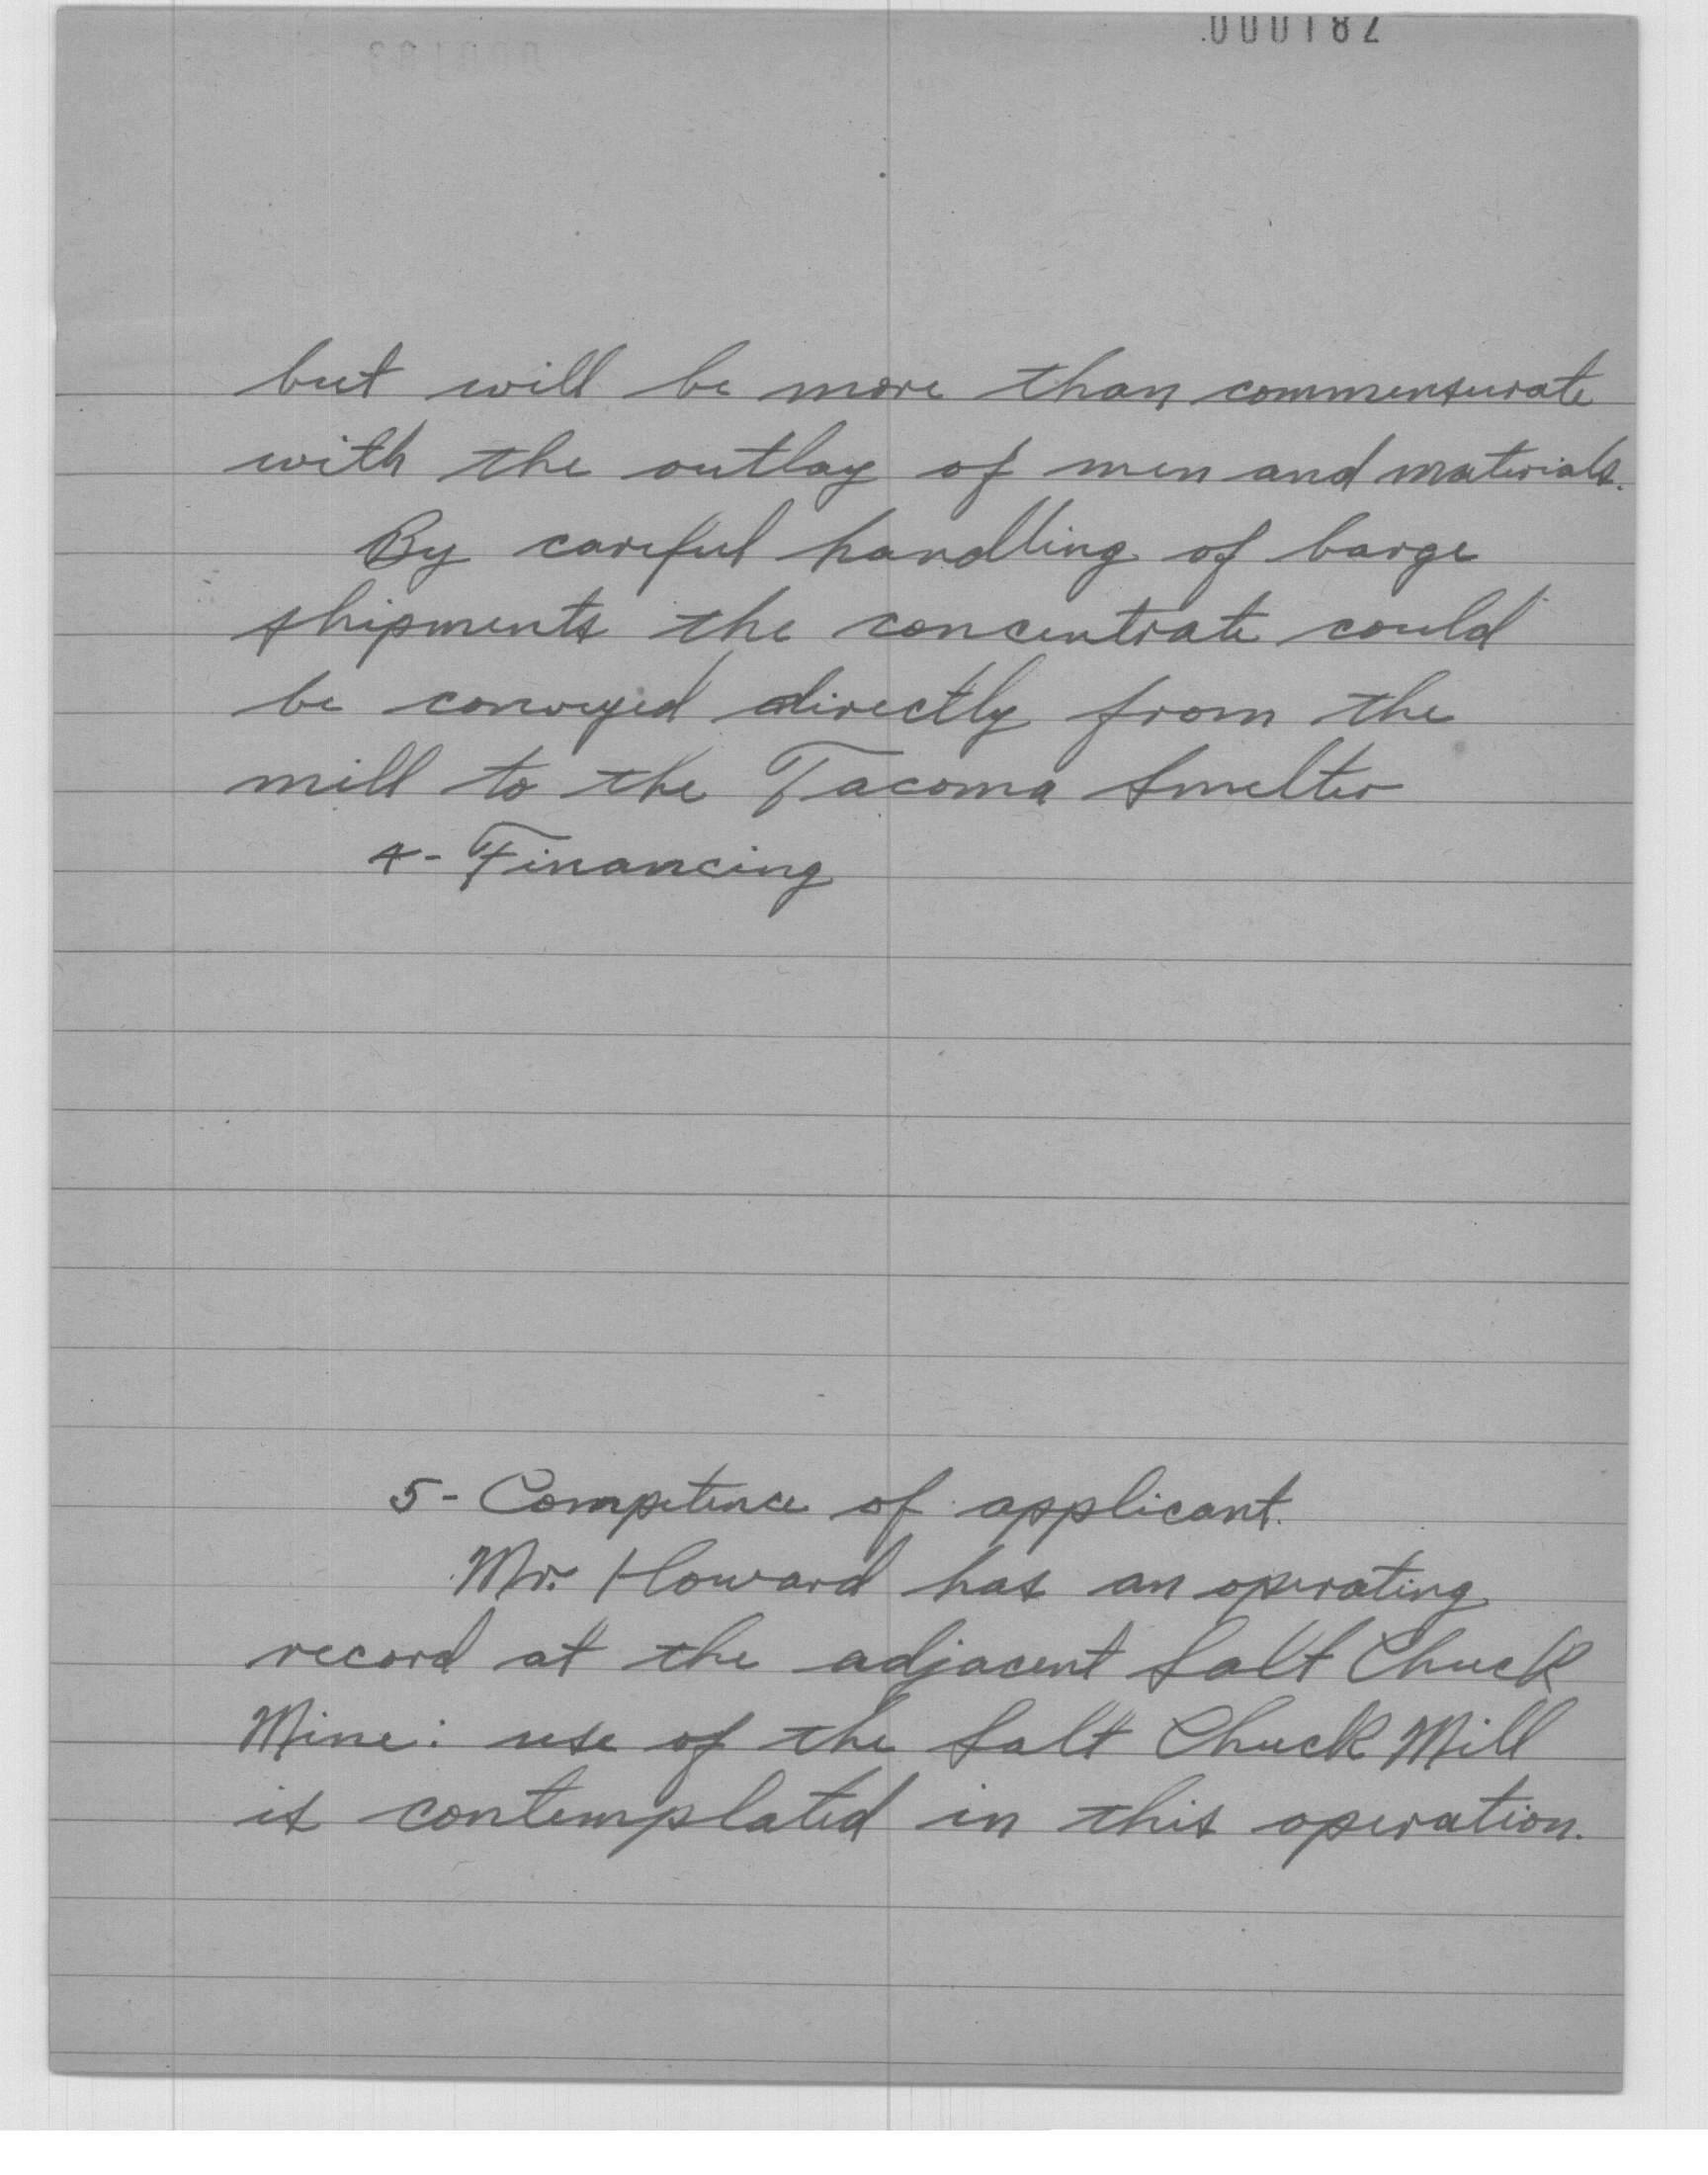 000182
but will be more than commensurate
with the outlay of men and materials.
By careful handling of barge
shipments the concentrate could
be conveyed directly from the
mill to the Tacoma Smelter
4- Financing
5- Competence of applicant.
Mr. Howard has an operating
record at the adjacent Salt Chuck
Mine: use of the Salt Chuck Mill
is contemplated in this operation.